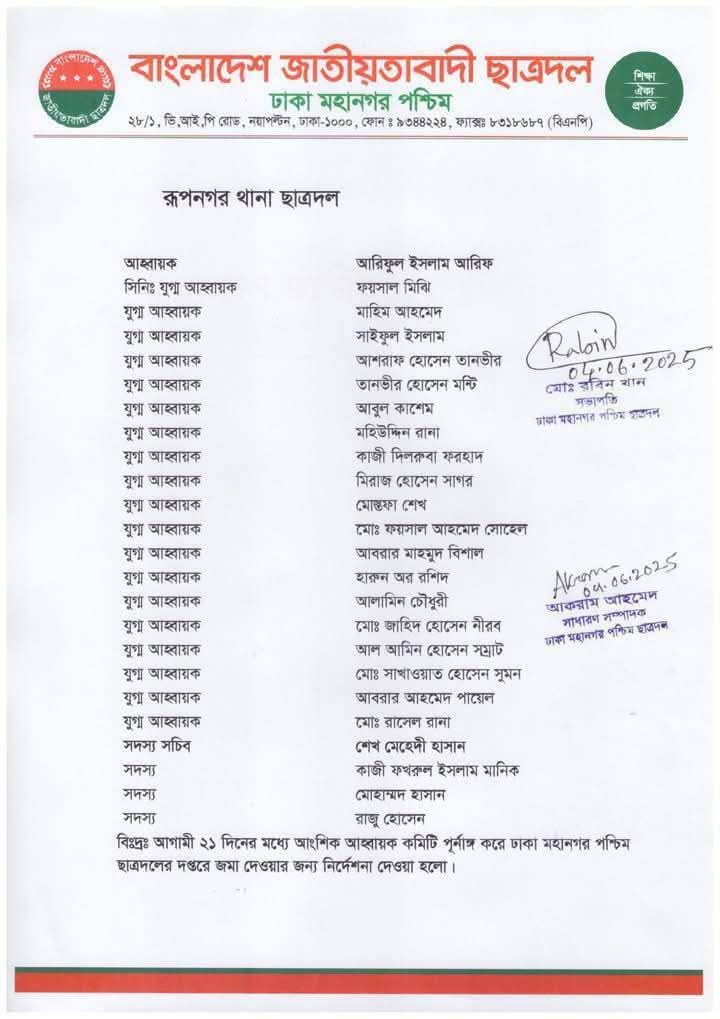 বাংলাদেশ জাতীয়তাবাদী ছাত্রদল
ঢাকা মহানগর পশ্চিম
২৮/১, ভি,আই,পি রোড, নয়াপল্টন, ঢাকা-১০০০, ফোন ঃ ৯৩৪৪২২৪, ফ্যাক্সঃ ৮৩১৮৬৮৭ (বিএনপি)
বাংলাদেশ
জাতীয়তাবাদী ছাত্রদল
শিক্ষা
ঐক্য
প্রগতি
রূপনগর থানা ছাত্রদল
আহ্বায়ক আরিফুল ইসলাম আরিফ
সিনিঃ যুগ্ম আহ্বায়ক ফয়সাল মিঝি
যুগ্ম আহ্বায়ক মাহিম আহমেদ
যুগ্ম আহ্বায়ক সাইফুল ইসলাম
যুগ্ম আহ্বায়ক আশরাফ হোসেন তানভীর
যুগ্ম আহ্বায়ক তানভীর হোসেন মন্টি
যুগ্ম আহ্বায়ক আবুল কাশেম
যুগ্ম আহ্বায়ক মহিউদ্দিন রানা
যুগ্ম আহ্বায়ক কাজী দিলরুবা ফরহাদ
যুগ্ম আহ্বায়ক মিরাজ হোসেন সাগর
যুগ্ম আহ্বায়ক মোস্তফা শেখ
যুগ্ম আহ্বায়ক মোঃ ফয়সাল আহমেদ সোহেল
যুগ্ম আহ্বায়ক আবরার মাহমুদ বিশাল
যুগ্ম আহ্বায়ক হারুন অর রশিদ
যুগ্ম আহ্বায়ক আলামিন চৌধুরী
যুগ্ম আহ্বায়ক মোঃ জাহিদ হোসেন নীরব
যুগ্ম আহ্বায়ক আল আমিন হোসেন সম্রাট
যুগ্ম আহ্বায়ক মোঃ সাখাওয়াত হোসেন সুমন
যুগ্ম আহ্বায়ক আবরার আহমেদ পায়েল
যুগ্ম আহ্বায়ক মোঃ রাসেল রানা
সদস্য সচিব শেখ মেহেদী হাসান
সদস্য কাজী ফখরুল ইসলাম মানিক
সদস্য মোহাম্মদ হাসান
সদস্য রাজু হোসেন
Rabin
04.06.2025
মোঃ রবিন খান
সভাপতি
ঢাকা মহানগর পশ্চিম ছাত্রদল
Akram
04.06.2025
আকরাম আহমেদ
সাধারণ সম্পাদক
ঢাকা মহানগর পশ্চিম ছাত্রদল
বিঃদ্রঃ আগামী ২১ দিনের মধ্যে আংশিক আহ্বায়ক কমিটি পূর্নাঙ্গ করে ঢাকা মহানগর পশ্চিম
ছাত্রদলের দপ্তরে জমা দেওয়ার জন্য নির্দেশনা দেওয়া হলো।